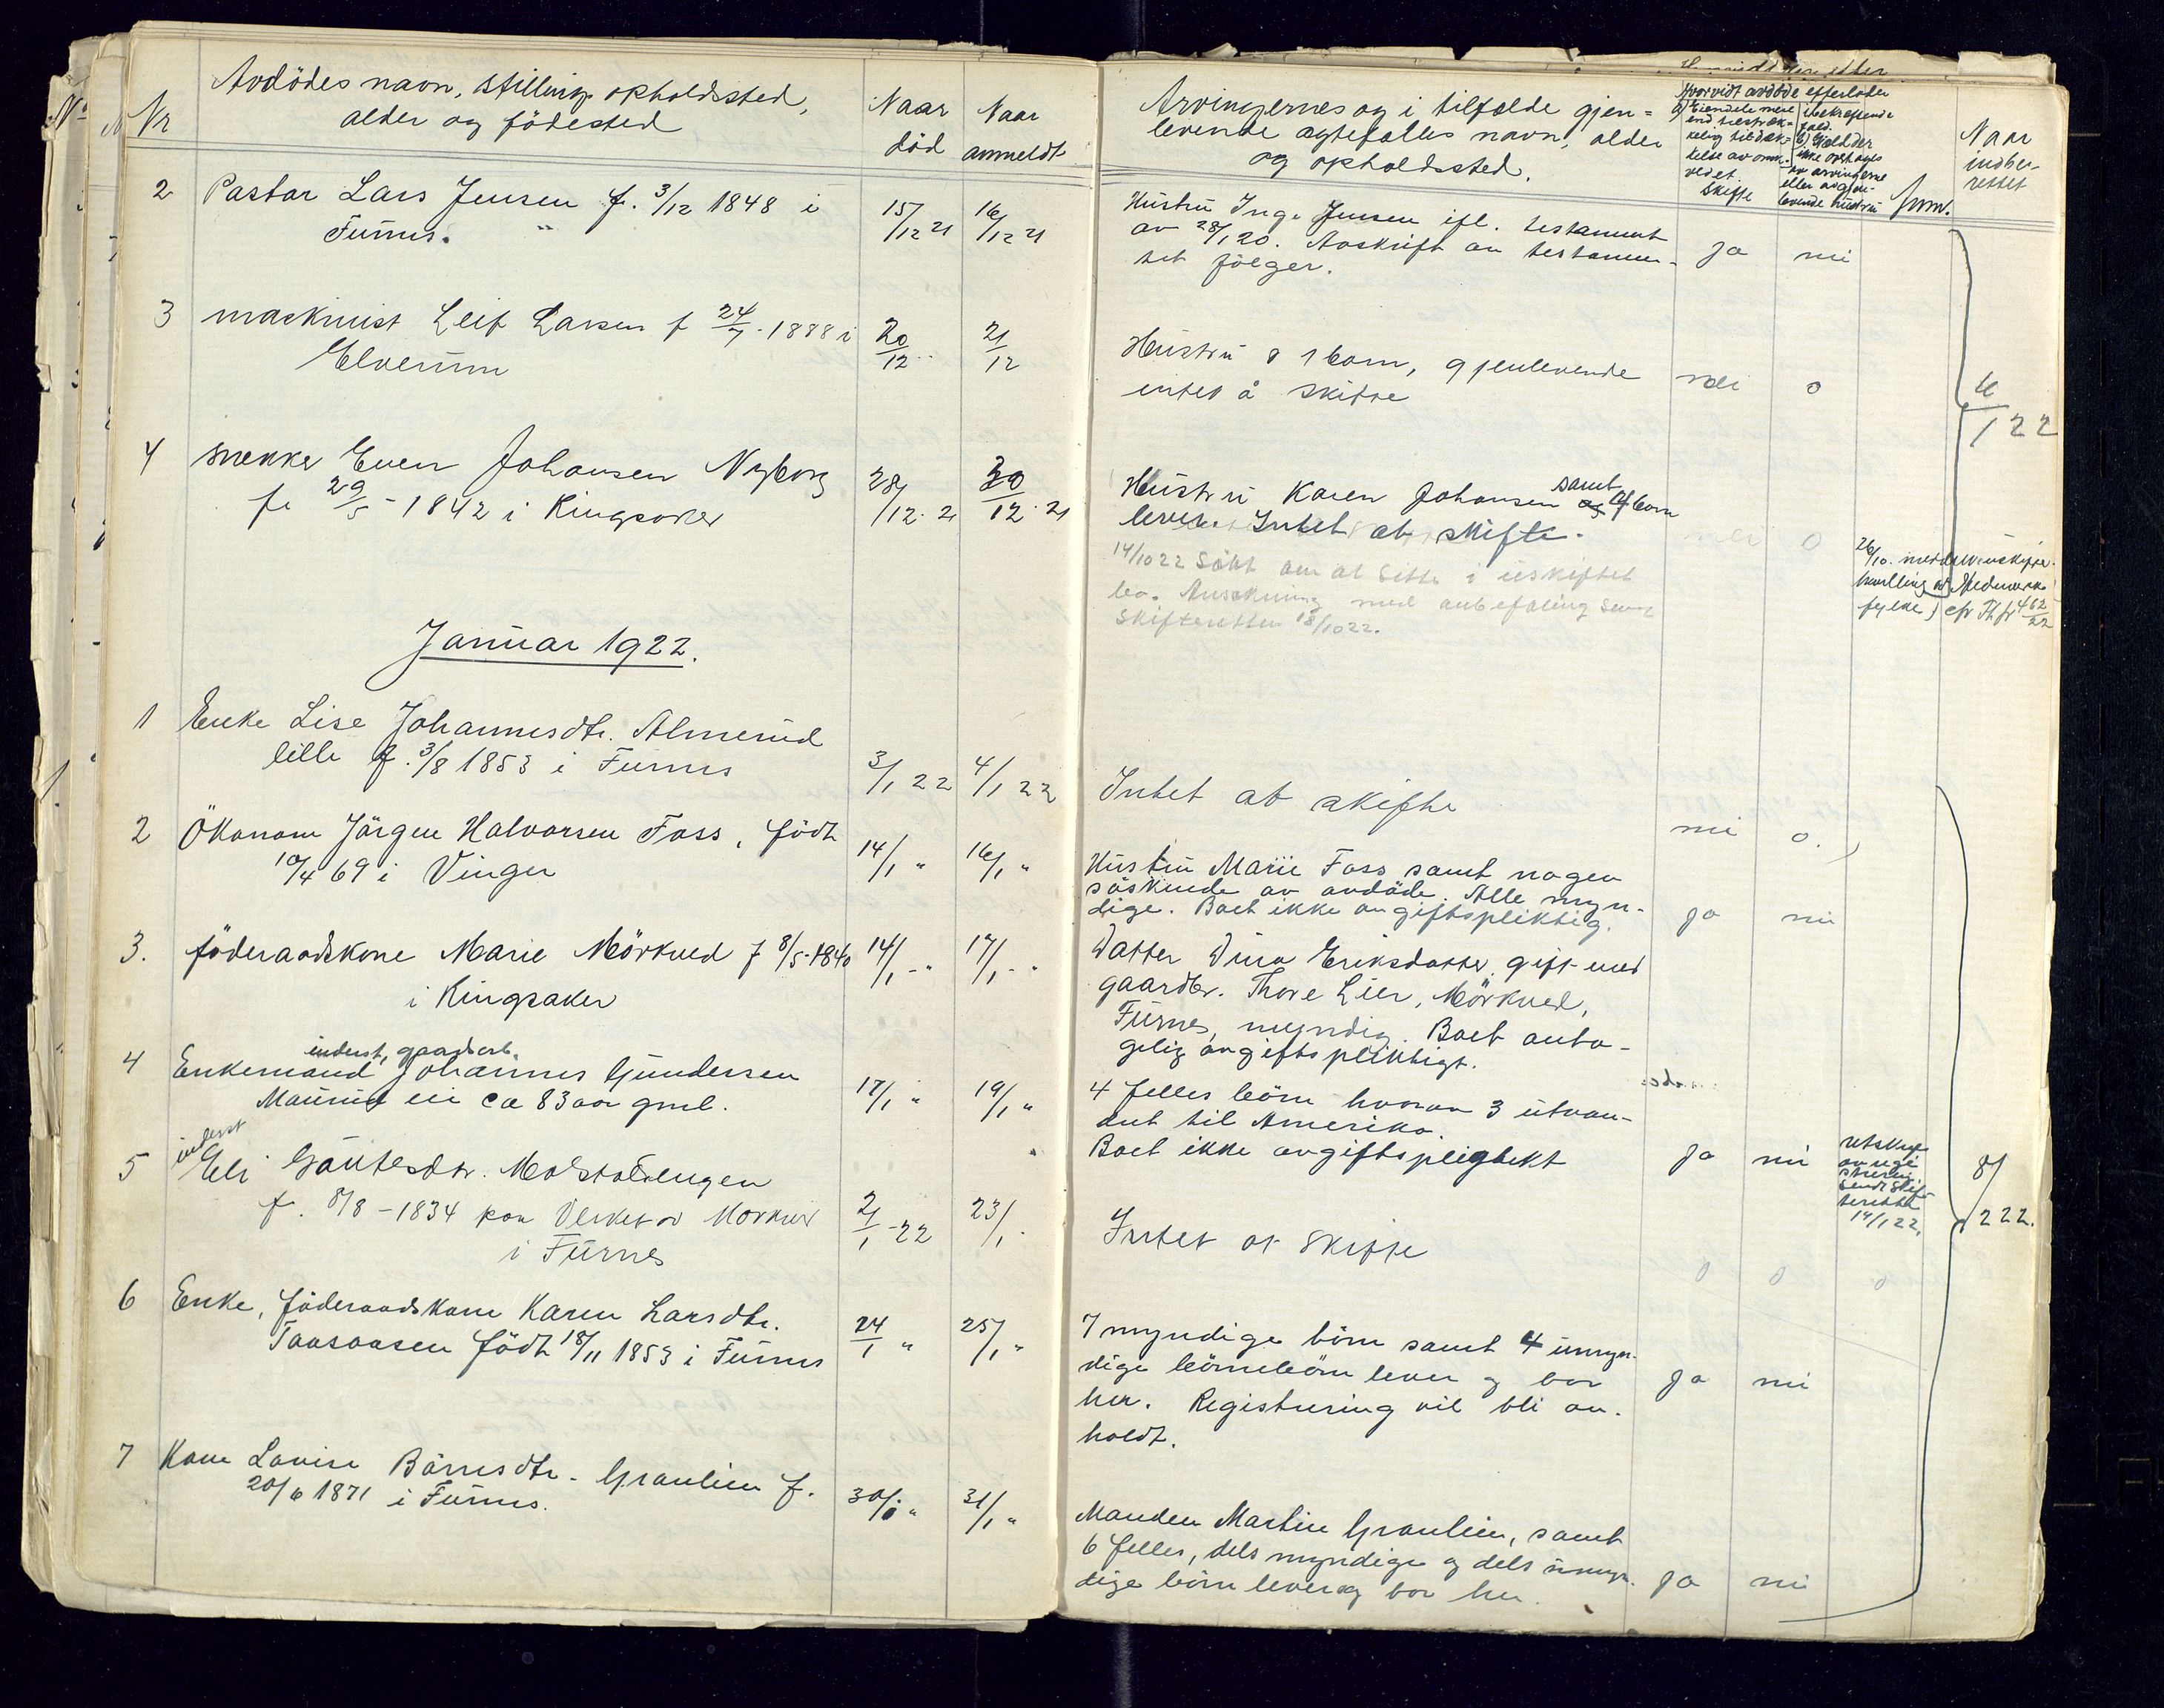 Nr
Avdödes navn, stilling opholdssted,
alder og födested
Naar
död
Naar
anmeldt
Arvingernes og i tilfælde gjen=
levende ægtefælles navn, alder
og opholdssted.
Hvorvidt avdöde efterlader
a) Eiendele mere
end tilstræk-
kelig til dæk-
telse av omk.
ved et
skifte
i bekræftende
fald.
b) Gjæld der
ikke overtages
av arvingerne
eller av gjen-
levende hustru
Anm.
Naar
indbe-
rettet
2 Pastor Lars Jensen f. 3/12 1848 i
Furnes.
15/12 21
16/12 21
Hustru Inga Jensen ifl. testament
av 28/1 20. Avskrift av testamen-
tet fölger.
Ja
nei
3 maskinist Leif Larsen f 24/7 - 1888 i
Elverum
20/12
21/12
Hustru & 1 barn, gjenlevende
intet å skifte
nei
0
4/1 22
4 snekker Even Johansen Nyborg
f. 29/5 - 1842 i Ringsaker
28/12. 21
30/12. 21
samt
Hustru Karen Johansen og 4 barn
lever. Intet at skifte.
nei
0
14/10 22 Sökt om at sitte i uskiftet
bo. Ansökning med anbefaling sendt
Skifteretten 18/10 22.
26/10. meddelt uskifte-
bevilling av Hedmarks
fylke) cfr Thj 462/22
Januar 1922.
1 Enke Lise Johannesdtr. Almerud
lille f. 3/8 1853 i Furnes
3/1 22
4/1 22
Intet at skifte
nei
0.
2 Ökonom Jörgen Halvorsen Foss, född
10/4 69 i Vinger
14/1 "
16/1 "
Hustru Marie Foss samt nogen
söskende av avdöde. Alle myn-
dige. Boet ikke avgiftspliktig.
Ja
nei
3. föderaadskone Marie Mörkved f 8/5-1840
i Ringsaker
14/1 - "
17/1 - "
Datter Dina Eriksdatter, gift med
gaardbr. Thore Lier, Mörkved,
Furnes, myndig. Boet anta-
gelig avgiftspliktigt.
inderst, gaardarb.
4 Enkemand Johannes Gundersen
Maurud eie ca 83 aar gml.
17/1 "
19/1 "
4 felles börn hvorav 3 utvan-
dret til Amerika.
Boet ikke avgiftspligtekt
Ja
nei
utskrift
av regi
strering
sendt skif-
teretten
14/1 22.
8/2 22.
inderst
5 Eli Gautesdtr. Molstadengen
f. 8/8 - 1834 paa Mörkved
i Furnes
21/1 - 22
23/1 -
Intet at skifte
0
0
0
6 Enke, föderaadskone Karen Larsdtr.
Taasaasen födt 18/11 1853 i Furnes
24/1 "
25/1 "
7 myndige börn samt 4 umyn-
dige börnebörn lever og bor
her. Registrering vil bli av-
holdt.
Ja
nei
7 Kone Lovise Börresdtr. Granlien f.
20/6 1871 i Furnes.
30/1 "
31/1 "
Manden Martin Granlien, samt
6 felles, dels myndige og dels umyn-
dige börn lever og bor her.
Ja
nei